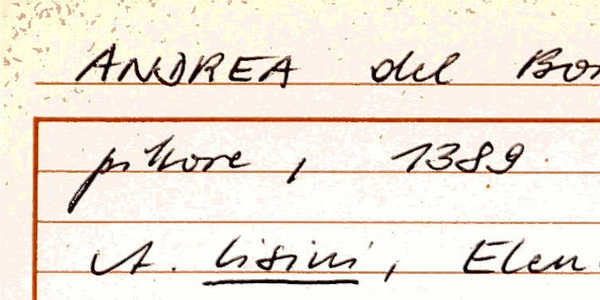 ANDREA del Bo
pittore, 1389
A. Lisini, Elen